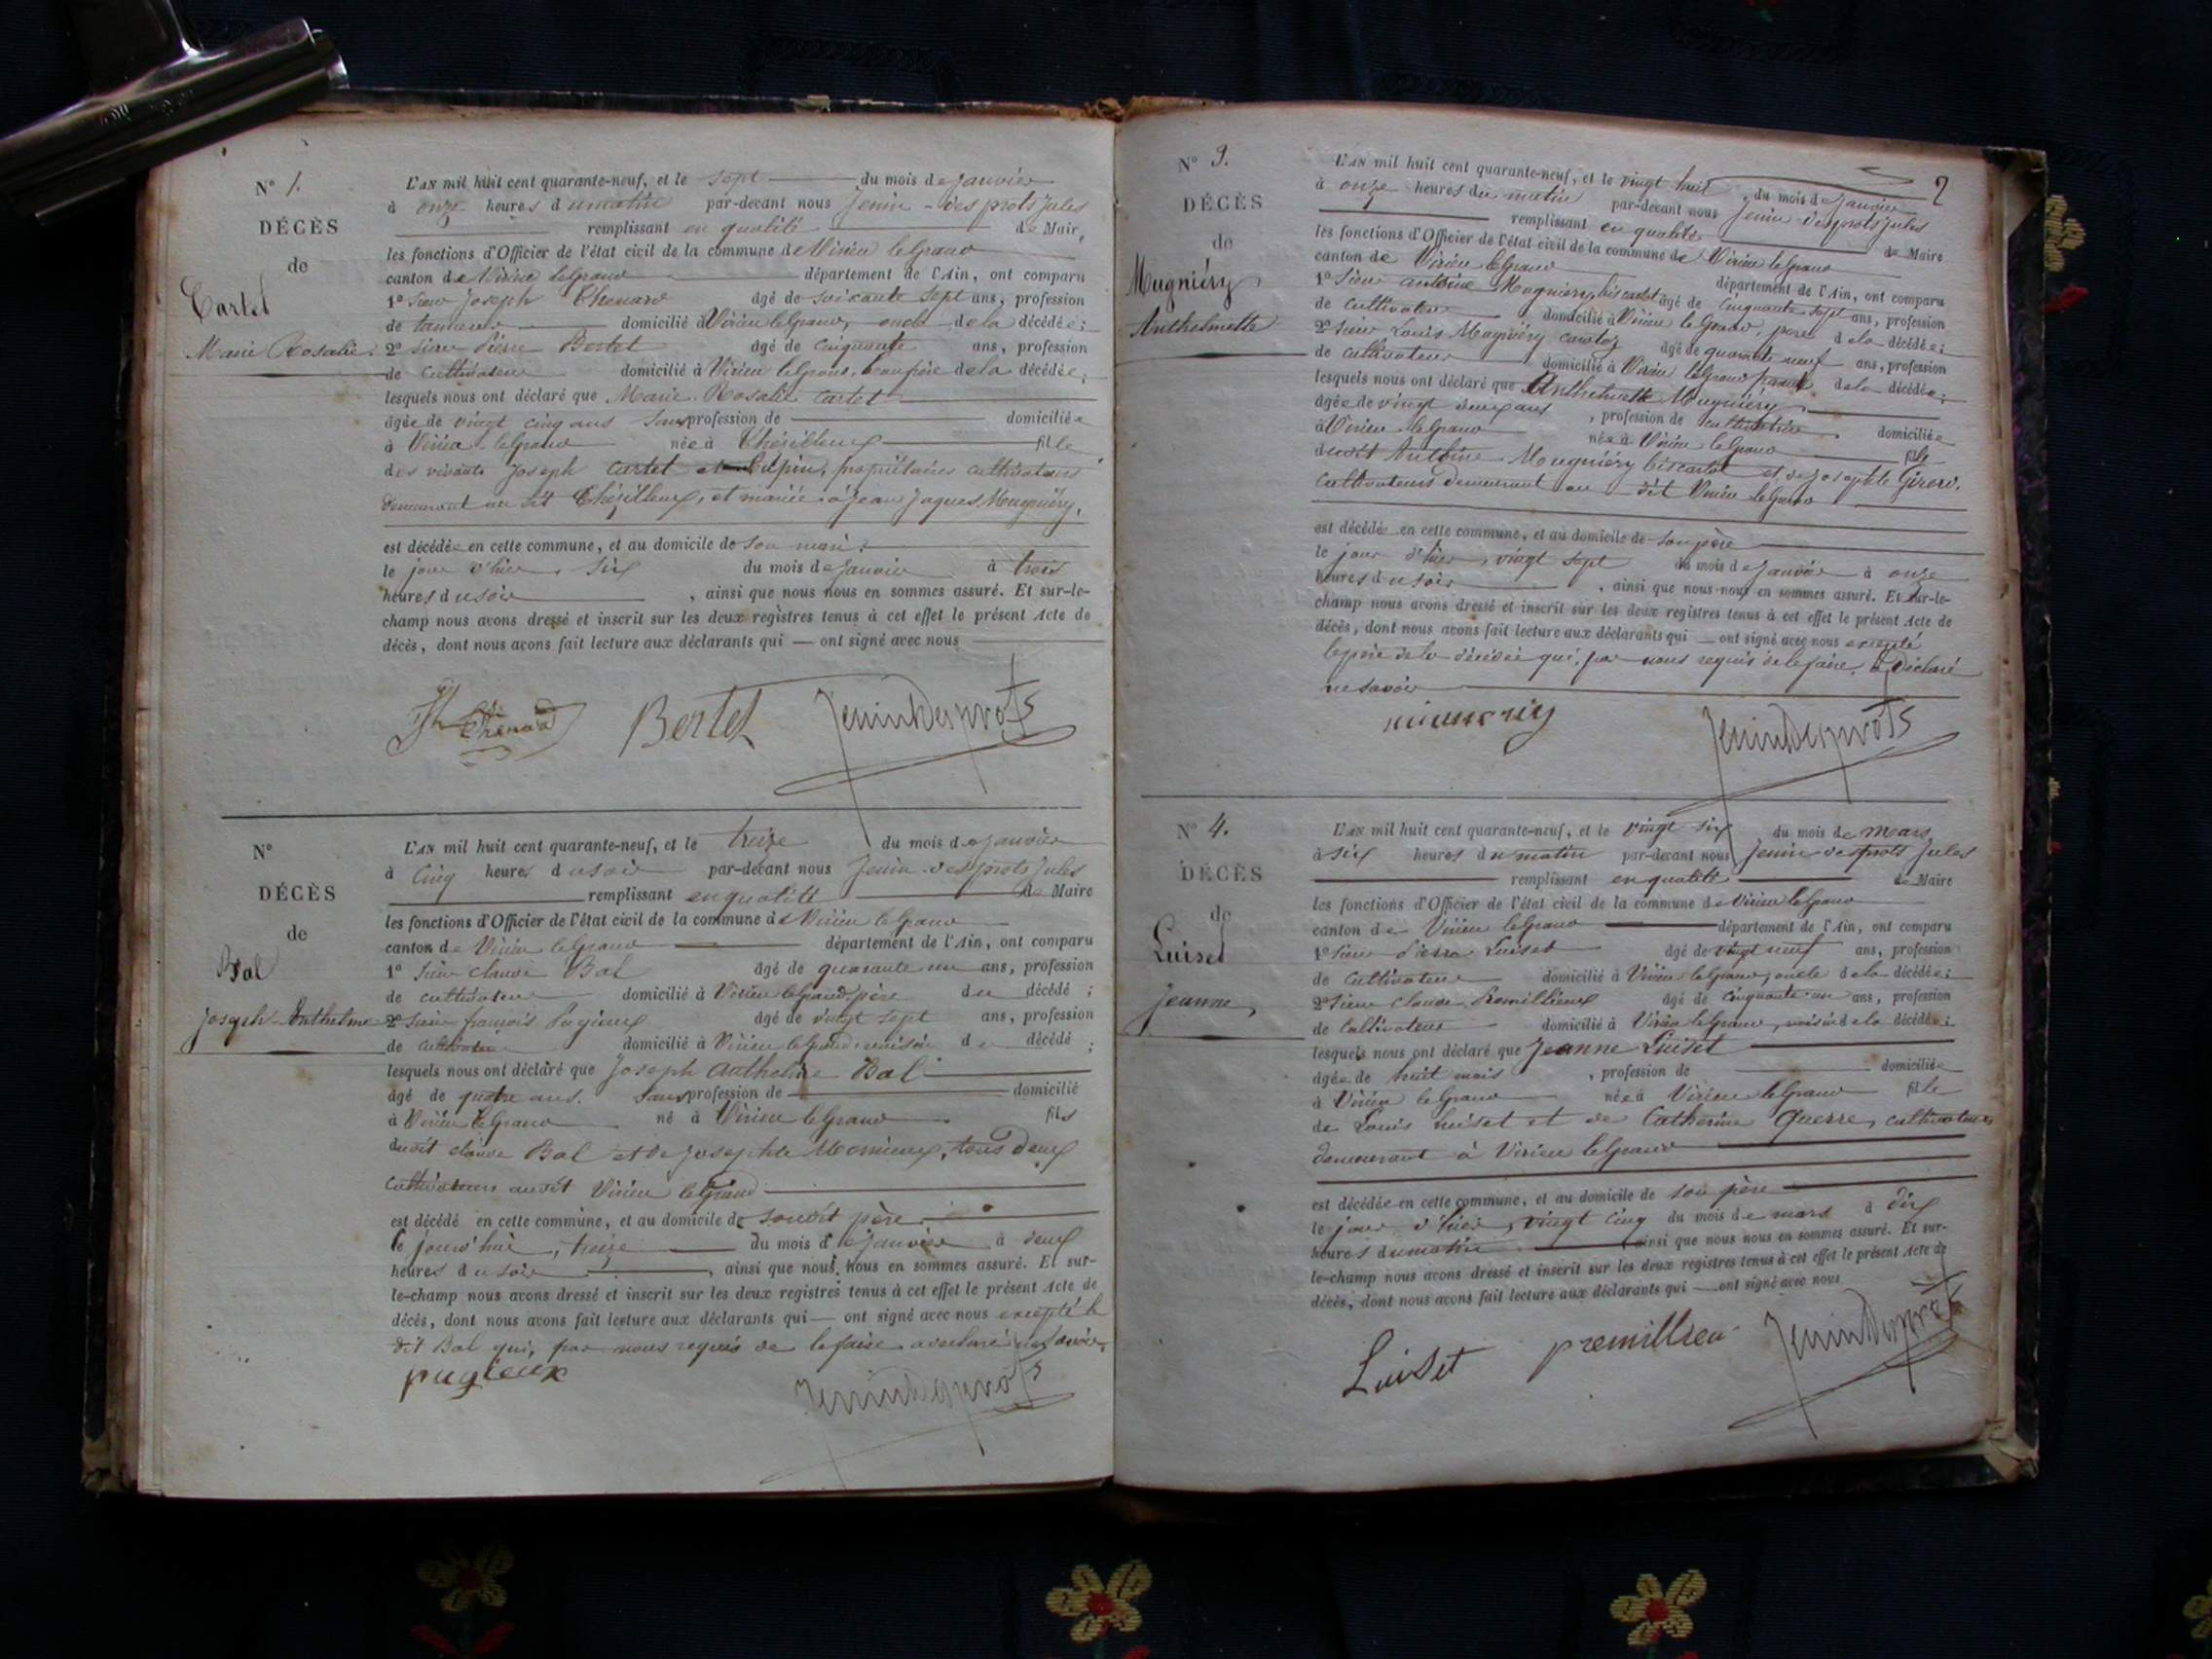 N° 1.
DÉCÈS
de
Cartet
Marie Rosalie.
L'AN mil huit cent quarante-neuf, et le sept du mois de janvier
à onze heures du matin par-devant nous Jenin-desprots jules
remplissant en qualité de Maire,
les fonctions d'Officier de l'état civil de la commune de Virieu le grand
canton de Virieu le grand département de l'Ain, ont comparu
1° Sieur joseph Thenard âgé de soixante sept ans, profession
de tanneur domicilié à Virieu le grand, oncle de la décédée;
2° Sieur Pierre Bertet âgé de cinquante ans, profession
de cultivateur domicilié à Virieu le grand, beau père de la décédée;
lesquels nous ont déclaré que Marie Rosalie Cartet
âgée de vingt cinq ans sans profession de domiciliée
à Virieu le grand née à Chézilleux fille
des vivants Joseph Cartet et propriétaires cultivateurs
demeurant au dit Chézilleux, et mariée à Jean Jaques Mugniéry,
est décédée en cette commune, et au domicile de son mari.
le jour d'hier, six du mois de janvier à trois
heures du soir, ainsi que nous nous en sommes assuré. Et sur-le-
champ nous avons dressé et inscrit sur les deux registres tenus à cet effet le présent Acte de
décès, dont nous avons fait lecture aux déclarants qui — ont signé avec nous
Jh Thénard Bertet JeninDesprots
N°
DÉCÈS
de
Bal
joseph-Anthelme
L'AN mil huit cent quarante-neuf, et le treize du mois de janvier
à cinq heures du soir par-devant nous Jenin-desprots jules
remplissant en qualité de Maire
les fonctions d'Officier de l'état civil de la commune de Virieu le grand
canton de Virieu le grand département de l'Ain, ont comparu
1° Sieur claude Bal âgé de quarante un ans, profession
de cultivateur domicilié à Virieu le grand, père du décédé;
2° Sieur françois Pugieux âgé de vingt sept ans, profession
de cultivateur domicilié à Virieu le grand, voisin du décédé;
lesquels nous ont déclaré que Joseph Anthelme Bal
âgé de quatre ans. sans profession de domicilié
à Virieu le grand né à Virieu le grand fils
dudit claude Bal et de josephte tous deux
cultivateurs audit Virieu le grand
est décédé en cette commune, et au domicile de son dit père
le jourd'hui, treize du mois de janvier à deux
heures du soir, ainsi que nous nous en sommes assuré. Et sur-
le-champ nous avons dressé et inscrit sur les deux registres tenus à cet effet le présent Acte de
décès, dont nous avons fait lecture aux déclarants qui — ont signé avec nous excepté le
dit Bal qui, par nous requis de le faire a déclaré ne savoir.
pugieux JeninDesprots
2
N° 3.
DÉCÈS
de
Mugniéry
Anthelmette
L'AN mil huit cent quarante-neuf, et le vingt huit du mois de janvier
à onze heures du matin par-devant nous Jenin-desprots jules
remplissant en qualité de Maire
les fonctions d'Officier de l'état civil de la commune de Virieu le grand
canton de Virieu le grand département de l'Ain, ont comparu
1° Sieur antoine Mugniéry biscartet âgé de cinquante sept ans, profession
de cultivateur domicilié à Virieu le grand, père de la décédée;
2° Sieur Louis Mugniéry âgé de quarante neuf ans, profession
de cultivateur domicilié à Virieu le grand, parent de la décédée;
lesquels nous ont déclaré que Anthelmette Mugniéry
âgée de vingt deux ans, profession de cultivatrice domiciliée
à Virieu le grand née à Virieu le grand fille
dudit Antoine Mugniéry biscartet et de josephte Girerd.
cultivateurs demeurant au dit Virieu le grand
est décédée en cette commune, et au domicile de son père
le jour d'hier, vingt sept du mois de janvier à onze
heures du soir, ainsi que nous nous en sommes assuré. Et sur-le-
champ nous avons dressé et inscrit sur les deux registres tenus à cet effet le présent Acte de
décès, dont nous avons fait lecture aux déclarants qui — ont signé avec nous excepté
le père de la décédée qui, par nous requis de le faire, a déclaré
ne savoir
JeninDesprots
N° 4.
DÉCÈS
de
Luiset
jeanne
L'AN mil huit cent quarante-neuf, et le vingt six du mois de mars
à six heures du matin par-devant nous Jenin-desprots Jules
remplissant en qualité de Maire
les fonctions d'Officier de l'état civil de la commune de Virieu le grand
canton de Virieu le grand département de l'Ain, ont comparu
1° Sieur Pierre Luiset âgé de vingt neuf ans, profession
de cultivateur domicilié à Virieu le grand, oncle de la décédée;
2° Sieur claude Premillieux âgé de cinquante un ans, profession
de cultivateur domicilié à Virieu le grand, voisin de la décédée;
lesquels nous ont déclaré que Jeanne Luiset
âgée de huit mois, profession de domiciliée
à Virieu le grand née à Virieu le grand fille
de Louis Luiset et de Catherine Guerre, cultivateurs
demeurant à Virieu le grand
est décédée en cette commune, et au domicile de son père
le jour d'hier, vingt cinq du mois de mars à dix
heures du matin ainsi que nous nous en sommes assuré. Et sur-
le-champ nous avons dressé et inscrit sur les deux registres tenus à cet effet le présent Acte de
décès, dont nous avons fait lecture aux déclarants qui — ont signé avec nous
Luiset premillieu JeninDesprots